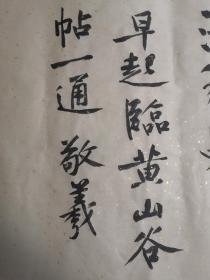 早起臨黄山谷
帖一通 敬義